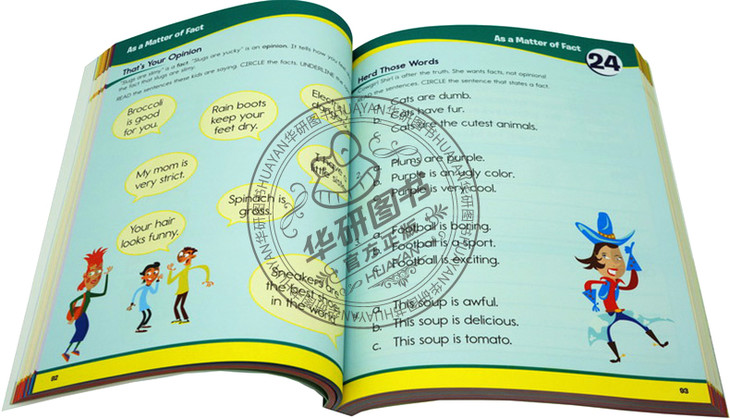 As a Matter of Fact
That's Your Opinion
"Slugs are slimy" is a fact. "Slugs are yucky" is an opinion. It tells how you feel
the fact that slugs are slimy.
READ the sentences these kids are saying. CIRCLE the facts. UNDERLINE the
Broccoli
is good
for you.
Rain boots
keep your
feet dry.
My mom is
very strict.
Spinach is
gross.
Your hair
looks funny.
Sneakers are
the best shoes
in the world.
92
As a Matter of Fact
24
Herd Those Words
is after the truth. She wants facts, not opinions!
the sentences. CIRCLE the sentence that states a fact.
Cats are dumb.
Cats have fur.
c. Cats are the cutest animals.
Plums are purple.
Purple is an ugly color.
Purple is very cool.
a. Football is boring.
Football is a sport.
Football is exciting.
a. This soup is awful.
b. This soup is delicious.
c. This soup is tomato.
93
HUAYAN华研图书HUAYAN华研图书
华研图书
官方正版